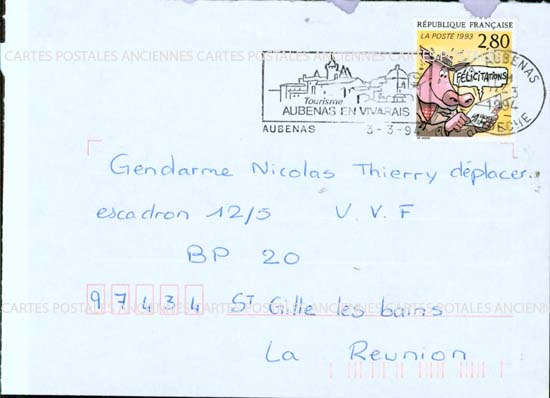 RÉPUBLIQUE FRANÇAISE
LA POSTE 1993
2,80
FÉLICITATIONS
CARTES POSTALES ANCIENNES CARTES POSTALES ANCIENNES
Tourisme
AUBENAS EN VIVARAIS
AUBENAS
3-3-94
AUBENAS
1994
Gendarme Nicolas Thierry déplacer
escadron 12/5 V.V.F
BP 20
97434 ST Gille les bains
CARTES POSTALES ANCIENNES CARTES POTALES ANCIENNES
La Reunion